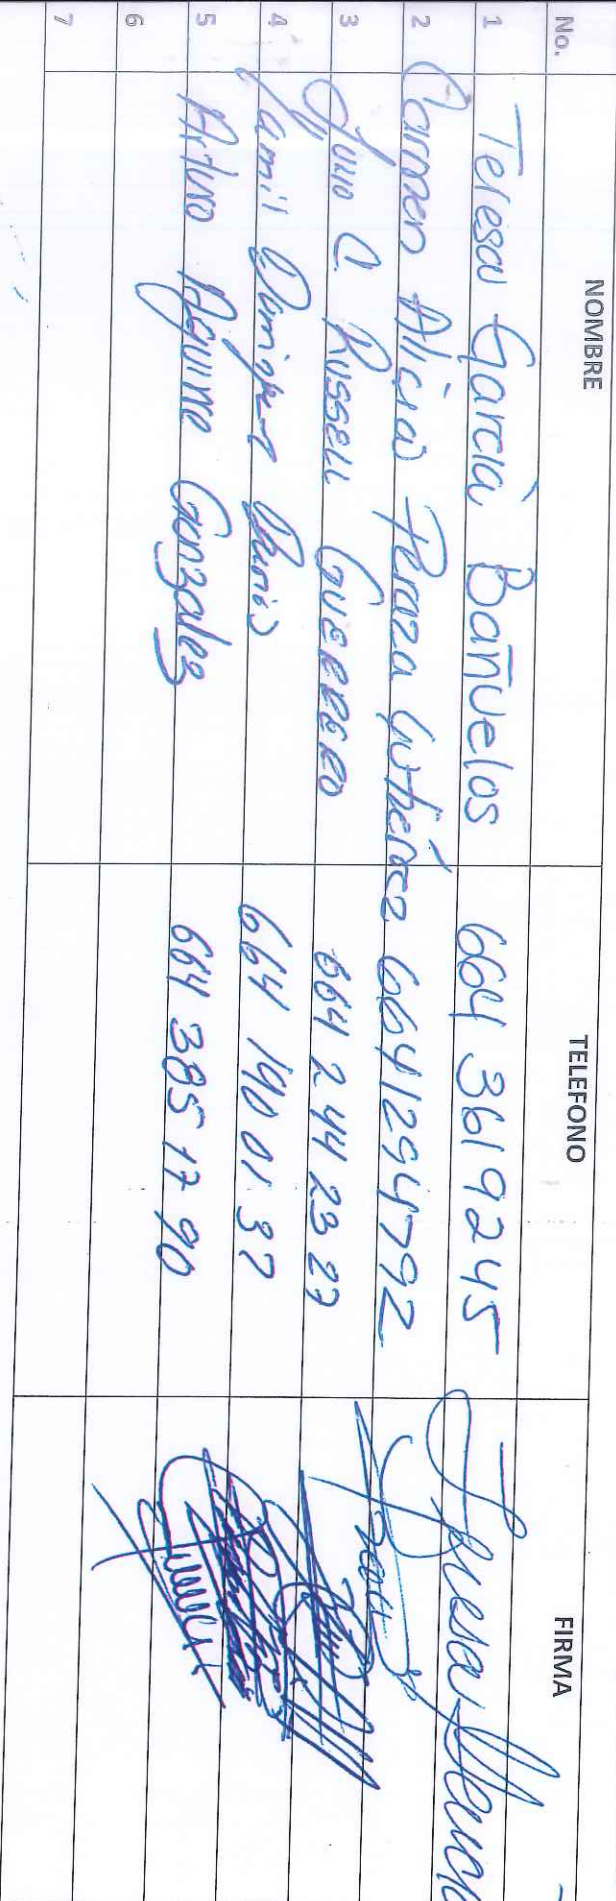 No. NOMBRE TELEFONO FIRMA
1 Teresa García Bañuelos 664 3619245 Teresa
2 Carmen Alicia Peraza Gutiérrez 6641294792
3 Julio C. RUSSELL GUERRERO 664 2 44 23 27
4 Yamil 664 190 01 37
5 Arturo Aguirre Gonzales 664 385 17 90
6
7